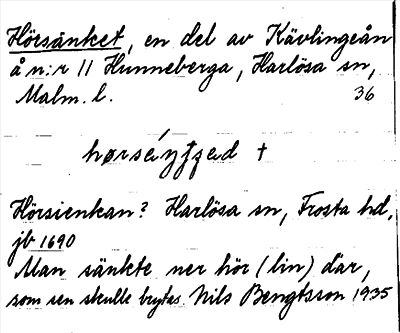 Hörsänket, en del av Kävlingeån
å n:r 11 Hunneberga, Harlösa sn,
Malm. l. 36
Hörsienkan? Harlösa sn, Frosta hd,
jb 1690
Man sänkte ner hör (lin) där,
som sen skulle brytas. Nils Bengtsson 1935